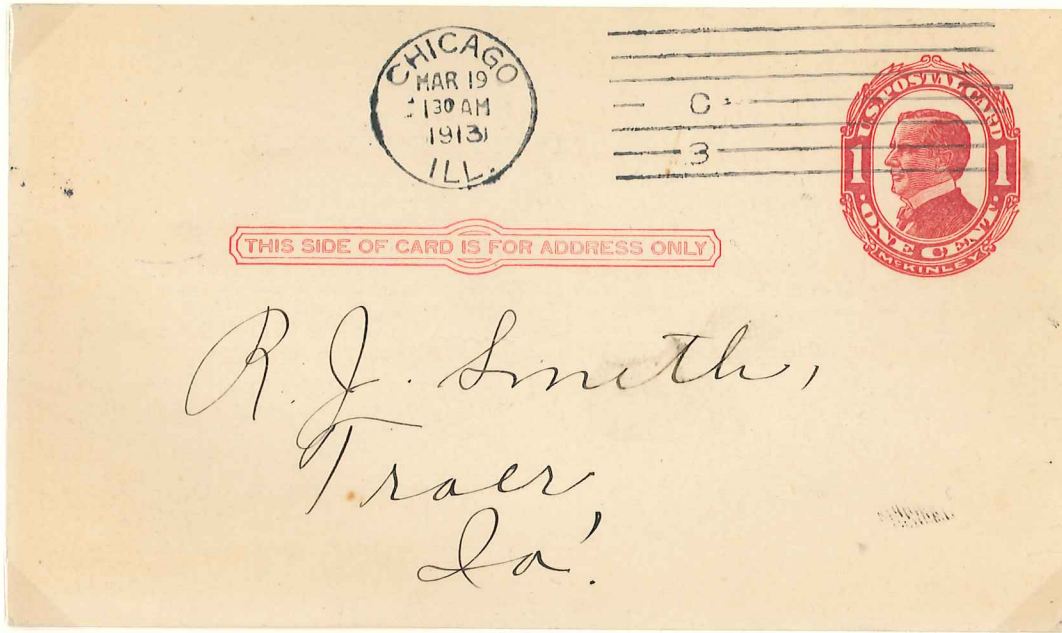 CHICAGO
MAR 19
130 AM
1913
ILL.
C
3
U.S. POSTAL CARD
1 1
· ONE CENT ·
McKINLEY
THIS SIDE OF CARD IS FOR ADDRESS ONLY
R. J. Smith,
Traer
Ia.